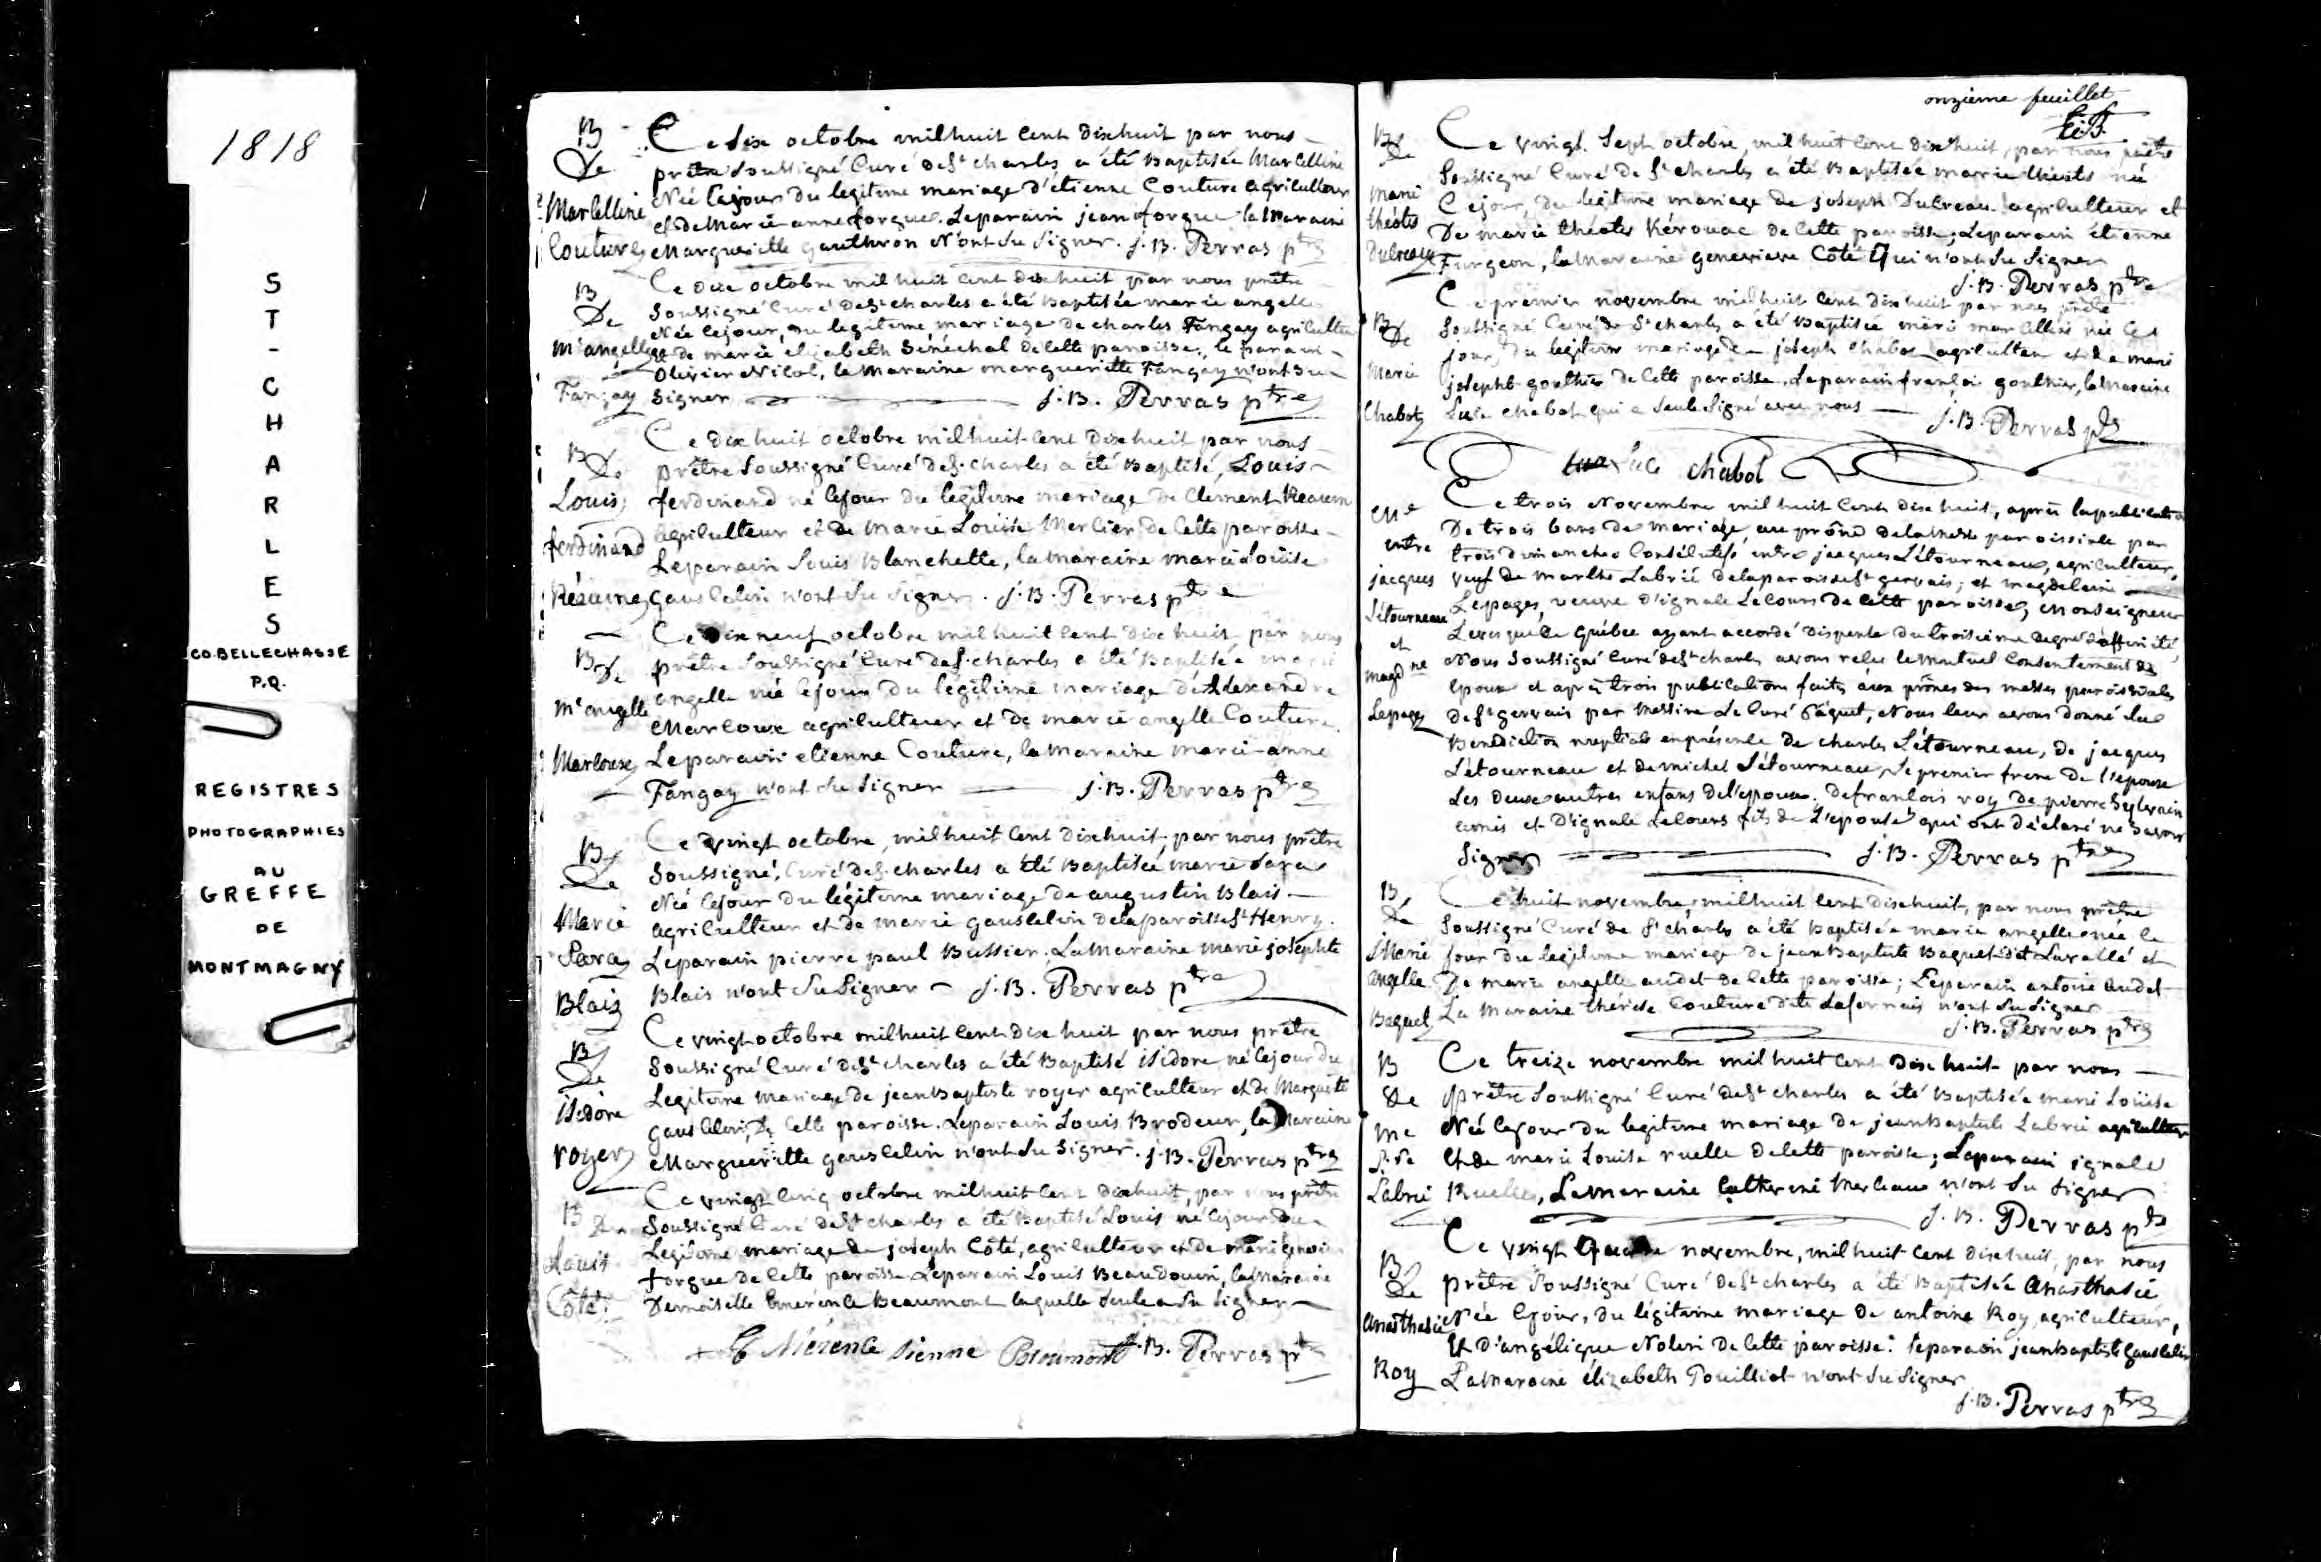 1818
S
T
-
C
H
A
R
L
E
S
CO. BELLECHASSE
P.Q.
REGISTRES
PHOTOGRAPHIES
AU
GREFFE
DE
MONTMAGNY
B
De
Marcelline
Couture
Ce dix octobre mil huit cent dixhuit par nous
prêtre soussigné Curé de St charles a été Baptisée Marcelline
Née cejour du legitime mariage d'etienne Couture agriculteur
et de Marie anne forgue. Leparain jean forgue la Maraine
Margueritte Gauthron N'ont su signer. J.B. Perras ptre
B
De
Me angelle
Fangay
Ce dix octobre mil huit cent dixhuit par nous prêtre
soussigné Curé de St charles a été Baptisée marie angelle
Née cejour, du legitime mariage de charles Fangay agriculteur
et de marie élizabeth Sénéchal de cette paroisse, le parain
Olivier Nicol, la Maraine marguerittte Fangay n'ont su
signer J.B. Perras ptre
B
De
Louis
ferdinand
Réaume
Ce dix huit octobre mil huit cent dixhuit par nous
prêtre soussigné Curé de St charles a été Baptisé, Louis
ferdinand né cejour du legitime mariage de Clement Reaume
agriculteur et de Marie Louise Mercier de cette paroisse
Leparain Louis Blanchette, la Maraine marie Louise
Gausselin n'ont su signer. J.B. Perras ptre
B
De
Me angelle
Marcoux
Ce dix neuf octobre mil huit cent dix huit, par nous
prêtre soussigné Curé de St charles a été Baptisée marie
angelle née cejour du légitime mariage d'Alexandre
Marcoux agriculteur et de marie angelle Couture.
Leparain etienne Couture, la Maraine marie-anne
Fangay n'ont su signer J.B. Perras ptre
B
De
Marie
Sara
Blais
Ce vingt octobre, mil huit cent dixhuit, par nous prêtre
soussigné, Curé de St charles a été Baptisée marie Sara
Née cejour du légitime mariage de augustin Blais
agriculteur et de marie gausselin de la paroisse St Henry.
Leparain pierre paul Bussier. La Maraine marie josephte
Blais n'ont su signer J.B. Perras ptre
B
De
isidore
royer
Ce vingt octobre mil huit cent dix huit par nous prêtre
soussigné Curé de St charles a été Baptisé isidore né cejour du
Legitime mariage de jean Baptiste royer agriculteur et de Marguerite
gausselin, de cette paroisse. Leparain Louis Brodeur, la Maraine
Marguerittte gausselin n'ont su signer. J.B. Perras ptre
B
De
Louis
Côté
Ce vingt cinq octobre mil huit cent dixhuit, par nous prêtre
soussigné Curé de St charles a été Baptisé Louis né cejour du
Legitime mariage de joseph Côté, agriculteur et de marie
forgue de cette paroisse. Leparain Louis Beaudouin, la Maraine
Demoiselle Emérence Beaumont laquelle seule a su signer
Emérence Beaumont J.B. Perras ptre
onzieme feuillet
B
De
Marie
théotis
Dubreau
Ce vingt sept octobre, mil huit cent dixhuit, par nous prêtre
Soussigné Curé de St charles a été Baptisée marie théotis née
Cejour, du legitime mariage de joseph Dubreau agriculteur et
De marie théotes Kérouac de cette paroisse, Leparain étienne
Furgeon, la Maraine genevieve Côté Qui n'ont su signer
J.B. Perras ptre
B
De
Marie
Chabot
Ce premier novembre mil huit cent dixhuit par nous prêtre
Soussigné Curé de St charles a été Baptisée marie marcelline née ce
jour, du legitime mariage de joseph Chabot agriculteur et de marie
josephte gouthier de cette paroisse. Leparain françois gouthier, la Maraine
Luce chabot qui a seule signé avec nous J.B. Perras ptre
Luce chabot
Me
entre
jacques
Létourneau
et
magdne
Lepage
Ce trois Novembre mil huit cent dixhuit, après la publication
De trois bans de mariage, au prône de la Messe paroissiale par
trois dimanches Consécutifs entre jacques Létourneau, agriculteur,
veuf de marthe Labrie de la paroisse St gervais; et magdelaine
Lepages, veuve d'ignace Lecours de cette paroisse, Monseigneur
L'evesque de Québec ayant accordé dispense du troisieme degré d'affinité,
Nous Soussigné Curé de St charles avons reçu le Mutuel Consentement des
epoux et après trois publications faites aux prônes des messes paroissiales
de St gervais par Messire Le Curé Pâquet, Nous leur avons donné la
Benediction nuptiale en présence de charles Létourneau, de jacques
Létourneau et de michel Létourneau, Le premier frere de l'epoux
Les deux autres enfans de l'epoux. De françois roy de pierre Sylvain
amis et D'ignace Lecours fils de L'epouse qui ont déclaré ne savoir
signer J.B. Perras ptre
B
De
Marie
angelle
Baquet
Ce huit novembre, mil huit cent dixhuit, par nous prêtre
Soussigné Curé de St charles a été Baptisée marie angelle née le
jour du legitime mariage de jean Baptiste Baquet dit Lavallé et
De marie angelle audet de cette paroisse; Leparain antoine audet
La Maraine thérèse Couture dite Lafernais n'ont su signer
J.B. Perras ptre
B
De
Me
Lse
Labrie
Ce treize novembre mil huit cent dixhuit par nous
prêtre Soussigné Curé de St charles a été Baptisée marie Louise
Née cejour du legitime mariage de jean Baptiste Labrie agriculteur
Et de marie Louise ruelle de cette paroisse, Leparain ignace
Ruelle, La Maraine Catherine Marceaux n'ont su signer
J.B. Perras ptre
B
De
Anasthasie
Roy
Ce vingt novembre, mil huit cent dixhuit, par nous
prêtre Soussigné Curé de St charles a été Baptisée Anasthasie
Née cejour, du légitime mariage de antoine Roy, agriculteur,
Et d'angélique Nolin de cette paroisse: Leparain jean Baptiste gausselin
La Maraine élizabeth Pouilliot n'ont su signer
J.B. Perras ptre